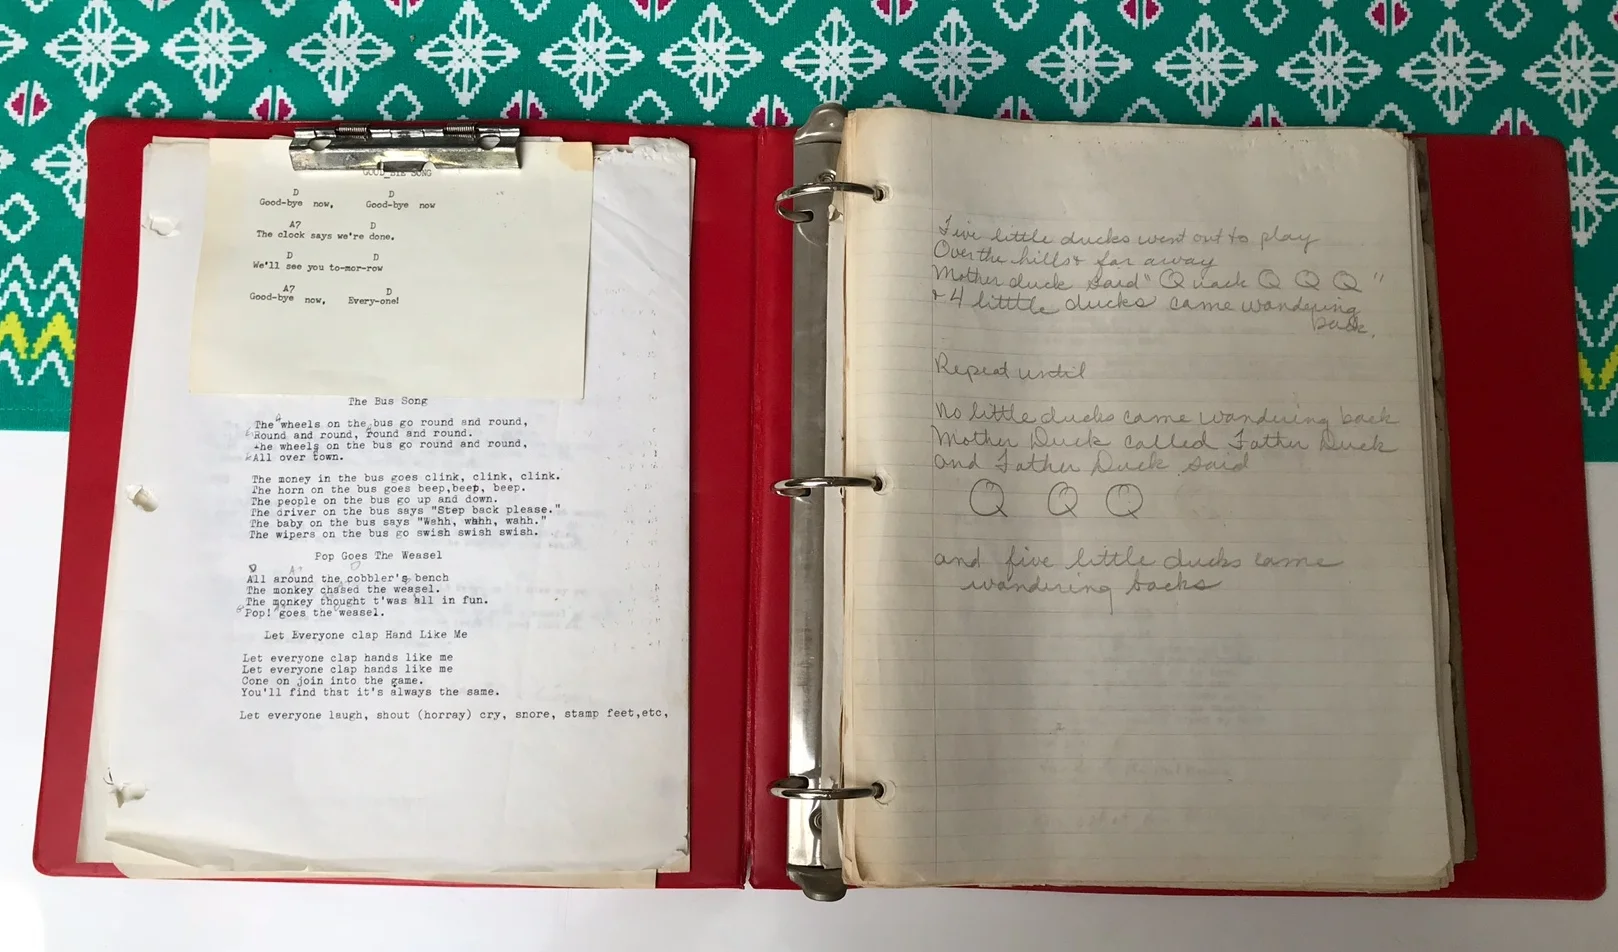 GOOD BYE SONG
D D
Good-bye now, Good-bye now
A7 D
The clock says we're done.
D D
We'll see you to-mor-row
A7 D
Good-bye now, Every-one!
The Bus Song
The wheels on the bus go round and round,
Round and round, round and round.
The wheels on the bus go round and round,
All over town.
The money in the bus goes clink, clink, clink.
The horn on the bus goes beep,beep, beep.
The people on the bus go up and down.
The driver on the bus says "Step back please."
The baby on the bus says "Wahh, wahh, wahh."
The wipers on the bus go swish swish swish.
Pop Goes The Weasel
D A7 D
All around the cobbler's bench
The monkey chased the weasel.
The monkey thought t'was all in fun.
Pop! goes the weasel.
Let Everyone clap Hand Like Me
Let everyone clap hands like me
Let everyone clap hands like me
Cone on join into the game.
You'll find that it's always the same.
Let everyone laugh, shout (horray) cry, snore, stamp feet,etc,
Five little ducks went out to play
Over the hills & far away
Mother duck said "Quack Q Q Q"
& 4 litttle ducks came wandering
back.
Repeat until
No little ducks came wandering back
Mother Duck called Father Duck
and Father Duck said
Q Q Q
and five little ducks came
wandering backs